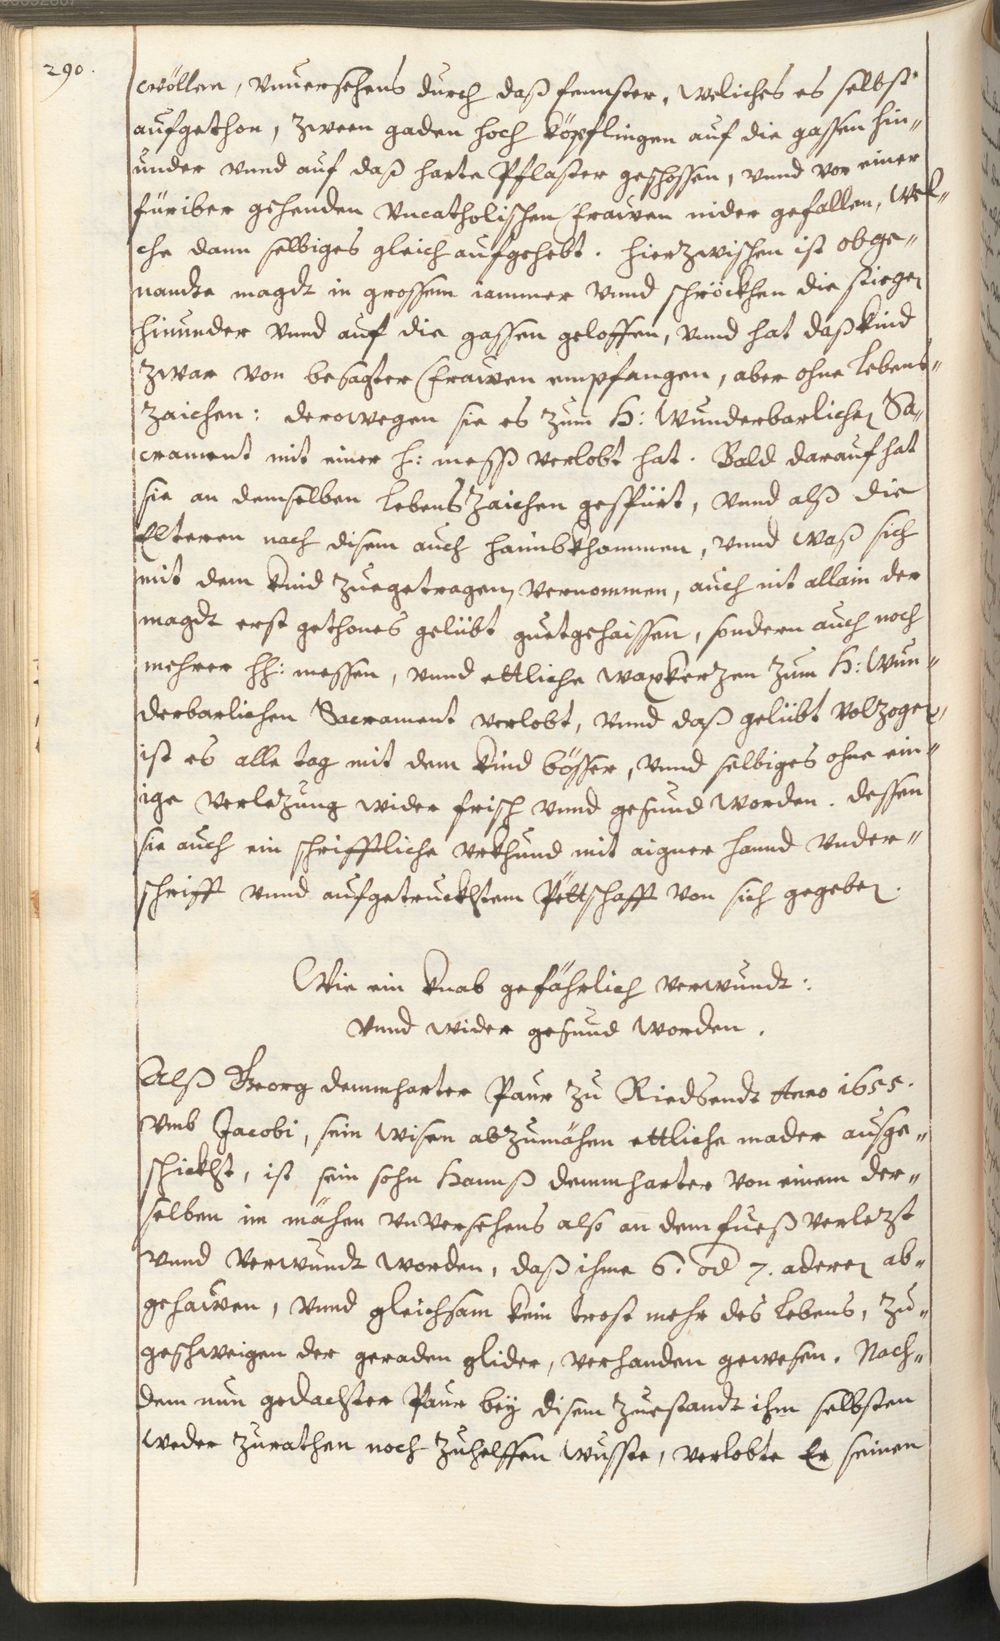 290.
wöllen, vnuersehens durch daß fennster, weliches es selbst
aufgethon, zween gaden hoch köpflingen auf die gassen hin„
under vnnd auf daß harte Pflaster geschossen, vnnd vor einer
füriber gehenden Vncatholischen frawen nider gefallen, wel„
che dann selbiges gleich aufgehebt. Hierzwischen ist obge„
nandte magdt in grossem iammer vnnd schröckhen die stiegen
hinunder vnnd auf die gassen geloffen, vnnd hat daß kind
zwar von besagter frawen empfangen, aber ohne lebens„
zaichen: derowegen sie es zum H: Wunderbarlichen Sa„
crament mit einer h: mess verlobt hat. Bald darauf hat
sie an demselben lebenszaichen gespürt, vnnd alß die
Elteren nach disem auch haimbkhommen, vnnd waß sich
mit dem kind zuegetragen, vernommen, auch nit allain der
magdt erst gethones gelübt guetgehaissen, sondern auch noch
mehrer hh: messen, vnnd ettliche waxkerzen zum H: Wun„
derbarlichen Sacrament verlobt, vnnd daß gelübt volzogen,
ist es alle tag mit dem kind bösser, vnnd selbiges ohne ein„
ige verlezung wider frisch vnnd gesund worden. dessen
sie auch ein schrifftliche vrkhund mit aigner hannd vnder„
schrifft vnnd aufgetruckhtem Pettschafft von sich gegeben.
Wie ein knab gefährlich verwundt:
vnnd wider gesund worden.
Alß Georg demmharter Paur zu Riedsendt Anno 1655.
vmb Jacobi, sein wisen abzumähen ettliche mader ausge„
schickht, ist sein sohn Hannß demmharter von einem der„
selben im mähen vnversehens also an dem fueß verlezt
vnnd verwundt worden, daß ihme 6. od 7. aderen ab„
gehawen, vnnd gleichsam kein trost mehr des lebens, zu„
geschweigen der geraden glider, verhanden gewesen. Nach„
dem nun gedachter Paur bey disem zuestandt ihm selbsten
weder zurathen noch zuhelffen wusste, verlobte Er seinen